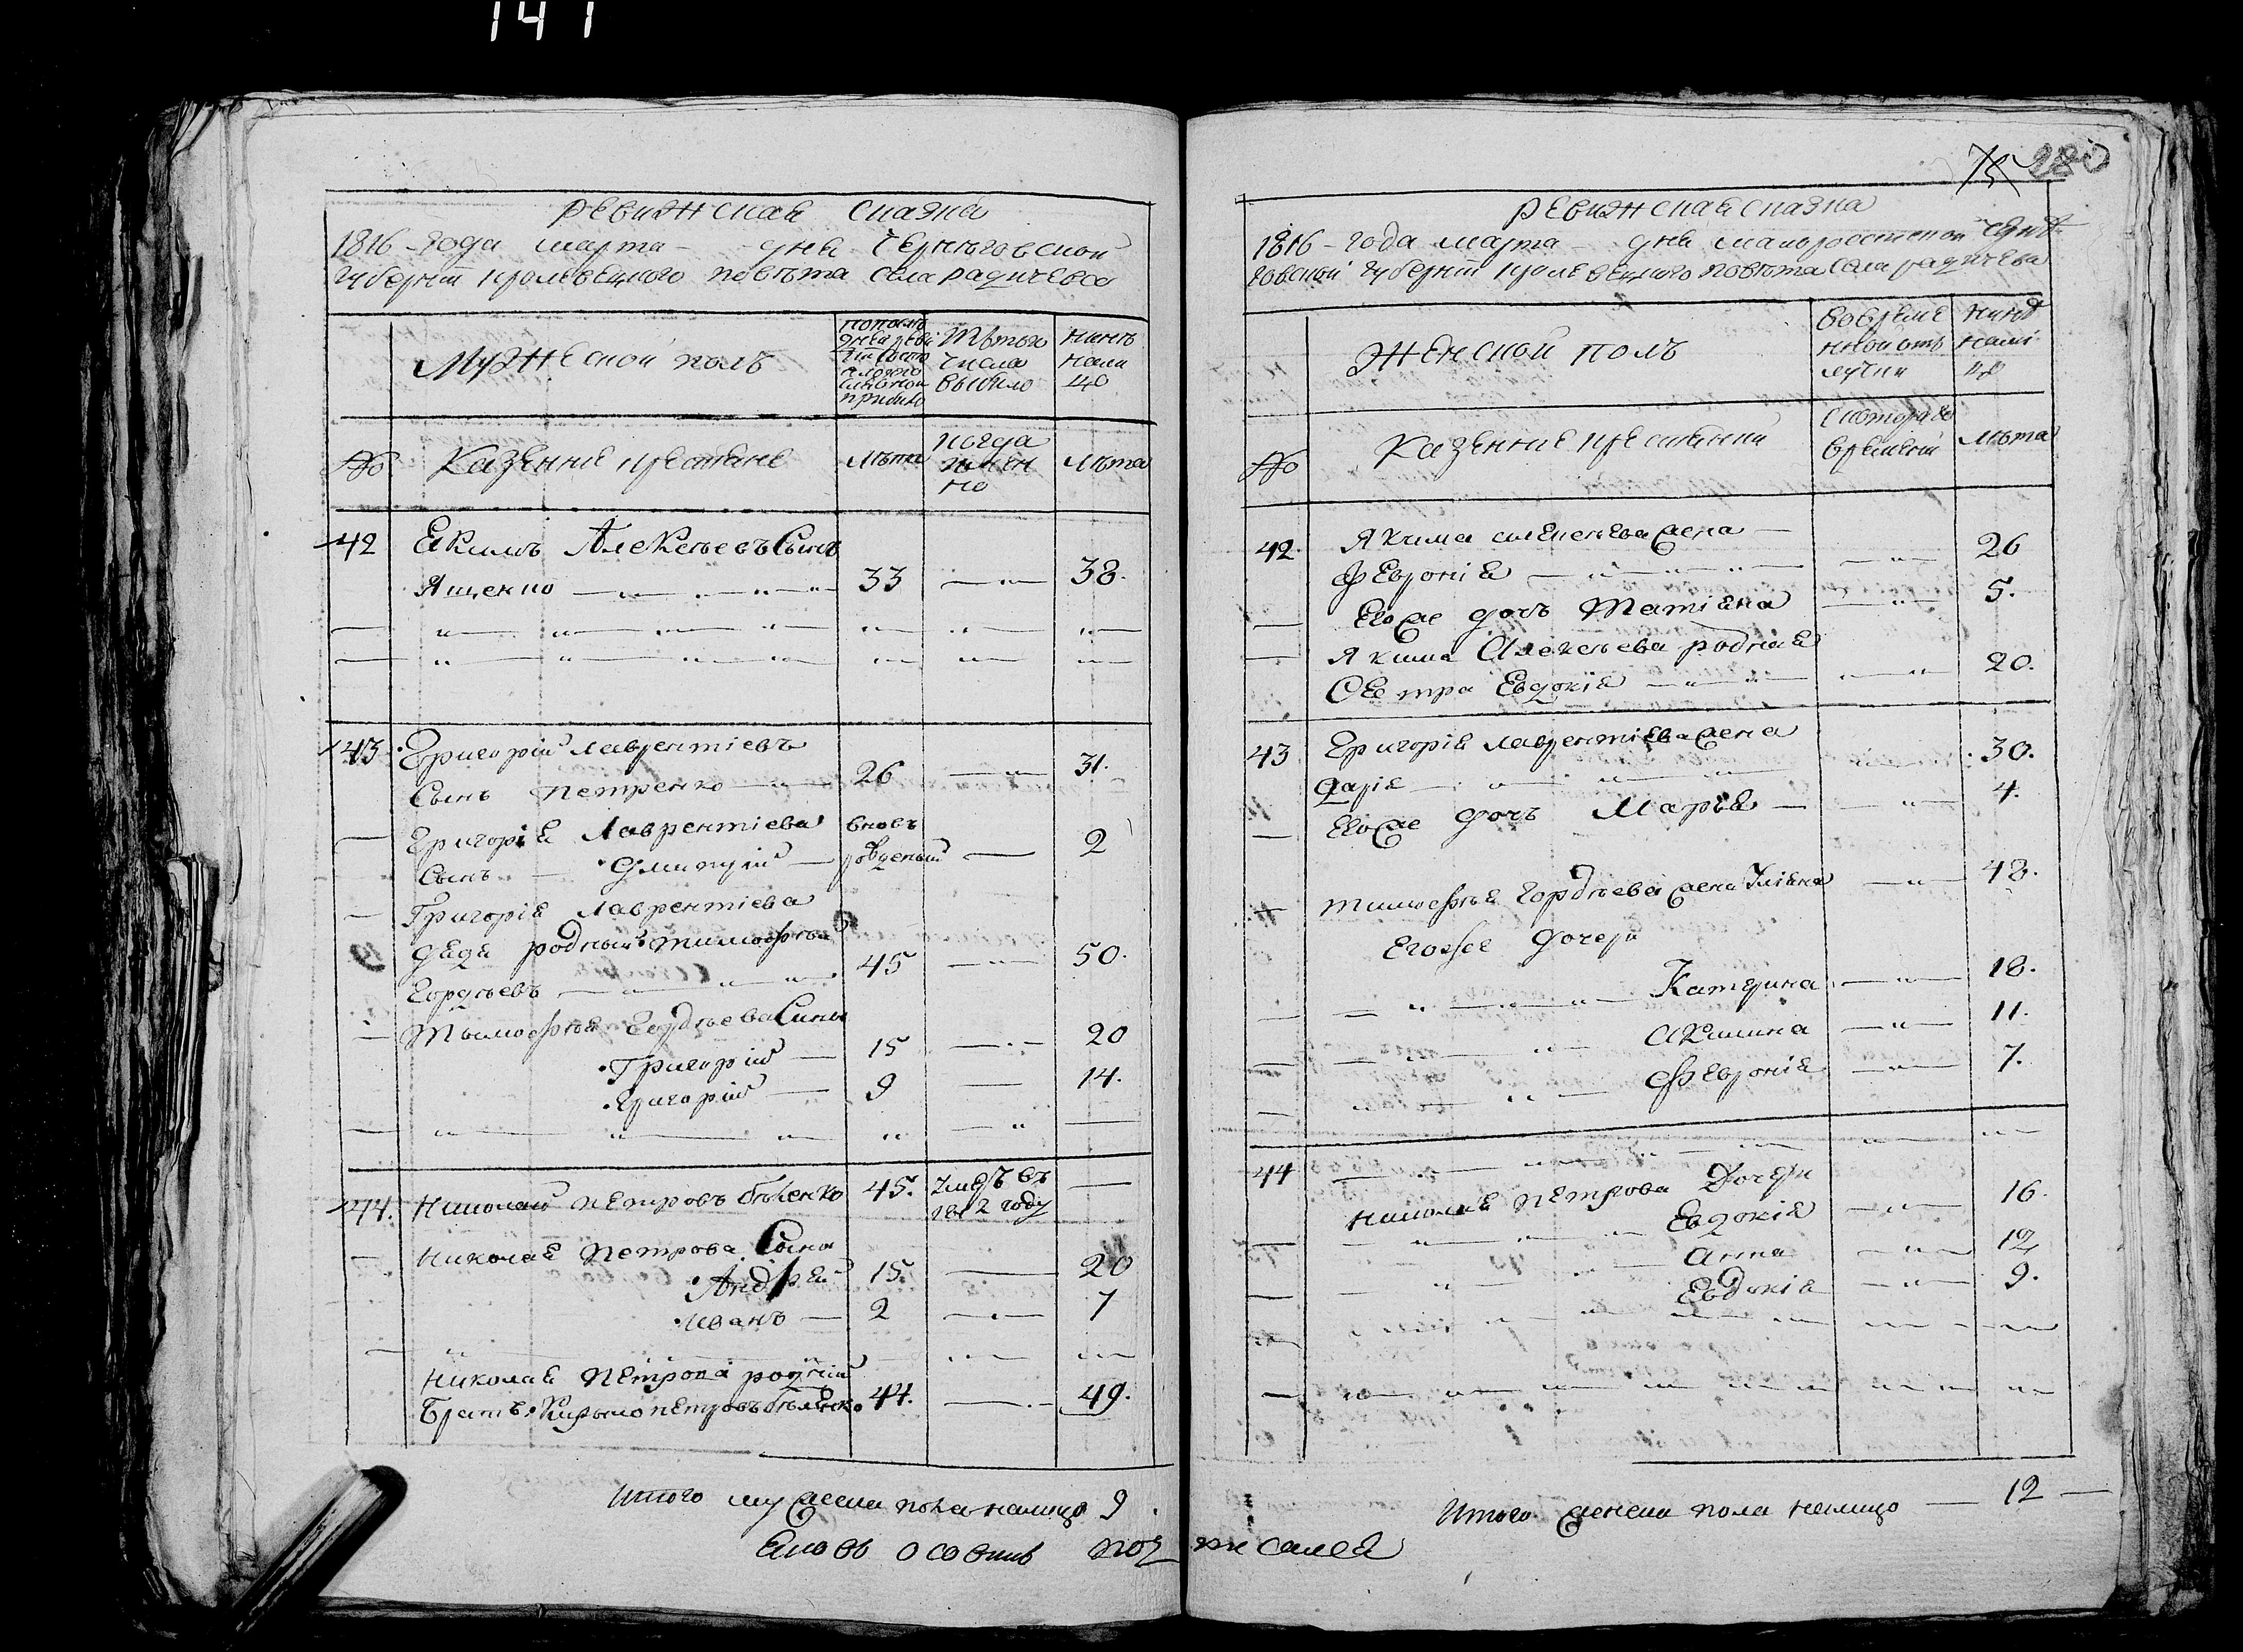 141
Ревижская сказка
1816 года марта дня Черниговской
губернии кролевецкого повета села радичева
Мужеской полъ
по последней ревизии состояло и после оной прибыло
Ис того числа выбыло
Ныне налицо
№
Казенние крестяне
Лета
когда именно
Лета
42 Екимъ Алексеевъ Сынъ
Ященко 33 38.
43 Григорій лаврентіевъ
Сынъ петренко 26 31.
Григорія Лаврентіева вновь
Сынъ Дмитрій рожденый 2
Григорія Лаврентіева
дядя родный тимофей
Гордеевъ 45 50.
Тымофея Гордеева Сини
Григорій 15 20
Григорій 9 14.
44. Николай петровъ 45. умеръ въ
1812 году
Николая Петрова Сыни
Андрей 15 20
Иванъ 2 7
Николая Петрова родній
Братъ Кирыло петровъ 44. 49.
Итого мужеска пола налицо 9.
Яковъ Осовикъ подписался
280
Ревижская сказка
1816 года марта дня малоросстской Черни
говской губернии кролевецкого повета села радичева
Женской полъ
Во временной отлучки
Ныне налицо
№
Казенние крестянки
С которого времени
Лета
42. Якима алексеева жена
Февронія 26
Егоже дочь Татіяна 5.
Якима Алексеева родная
Сестра Евдокія 20.
43 Григорія лаврентіева жена
Дарія 30.
Егоже дочь Марья 4.
тимофея Гордеева жена Уліяна 48.
Егожее дочери
Катерина 18.
Акилина 11.
Февронія 7.
44
Николая Петрова Дочери
Евдокія 16.
Анна 12
Евдокія 9.
Итого женска пола налицо 12